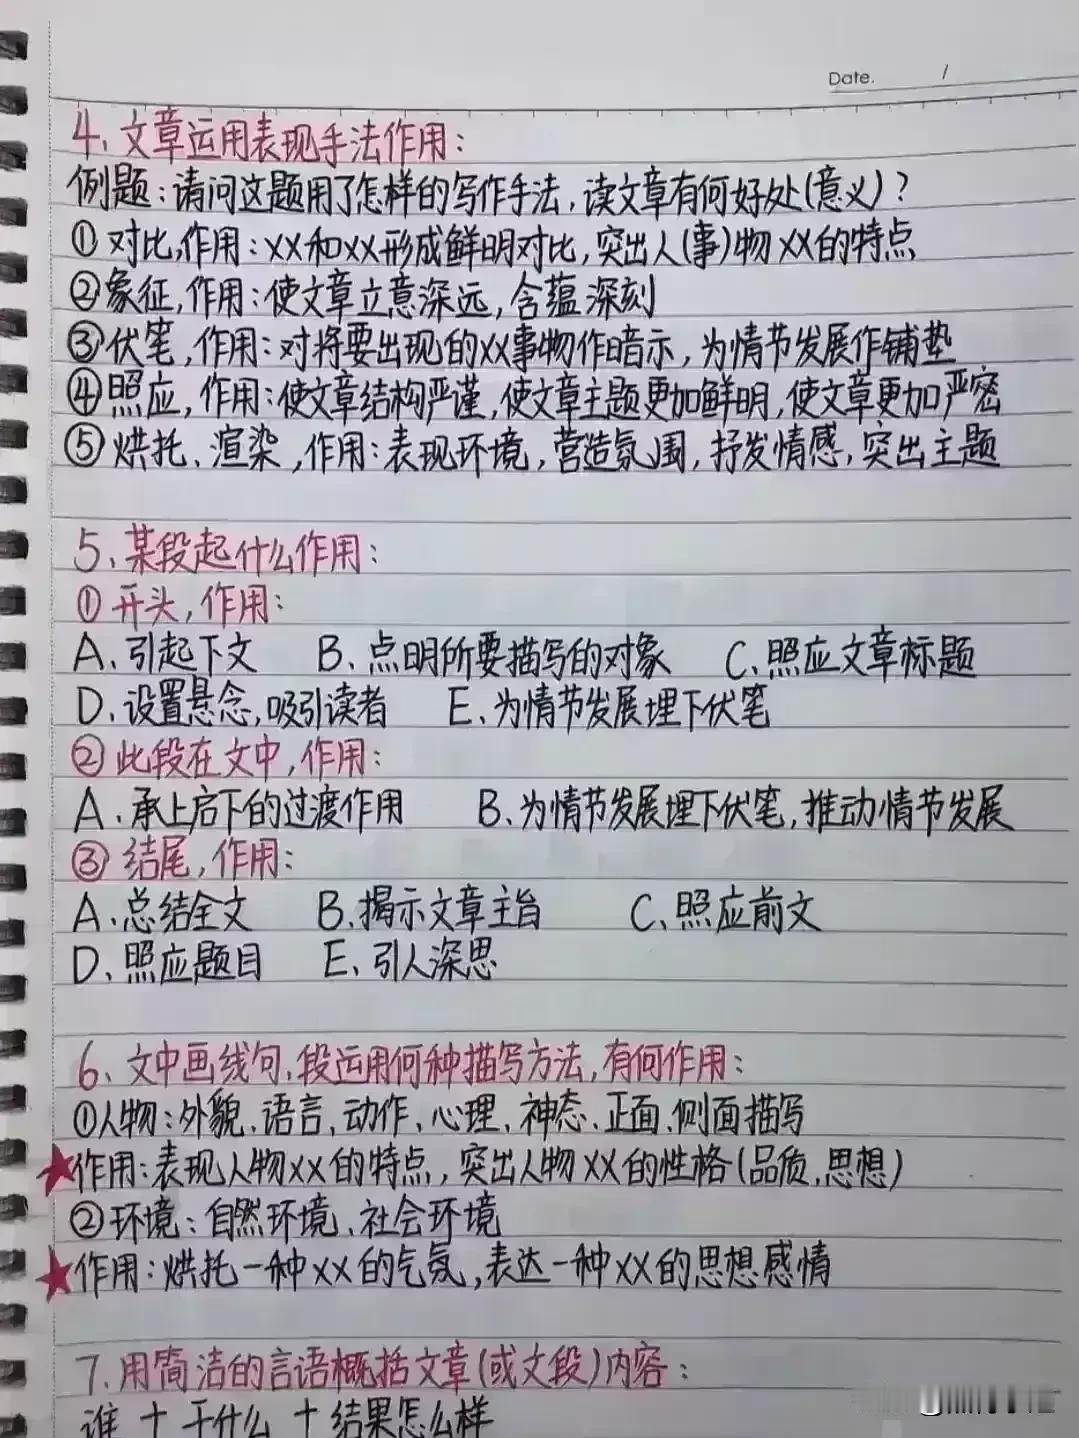 Date. /
4、文章运用表现手法作用：
例题：请问这题用了怎样的写作手法，读文章有何好处(意义)？
①对比，作用：XX和XX形成鲜明对比，突出人(事)物XX的特点
②象征，作用：使文章立意深远，含蕴深刻
③伏笔，作用：对将要出现的XX事物作暗示，为情节发展作铺垫
④照应，作用：使文章结构严谨，使文章主题更加鲜明，使文章更加严密
⑤烘托、渲染，作用：表现环境，营造氛围，抒发情感，突出主题
5、某段起什么作用：
①开头，作用：
A、引起下文 B、点明所要描写的对象 C、照应文章标题
D、设置悬念，吸引读者 E、为情节发展埋下伏笔
②此段在文中，作用：
A、承上启下的过渡作用 B、为情节发展埋下伏笔，推动情节发展
③结尾，作用：
A、总结全文 B、揭示文章主旨 C、照应前文
D、照应题目 E、引人深思
6、文中画线句、段运用何种描写方法，有何作用：
①人物：外貌、语言、动作、心理、神态、正面、侧面描写
作用：表现人物XX的特点，突出人物XX的性格(品质、思想)
②环境：自然环境、社会环境
作用：烘托一种XX的气氛，表达一种XX的思想感情
7、用简洁的言语概括文章(或文段)内容：
谁 + 干什么 + 结果怎么样